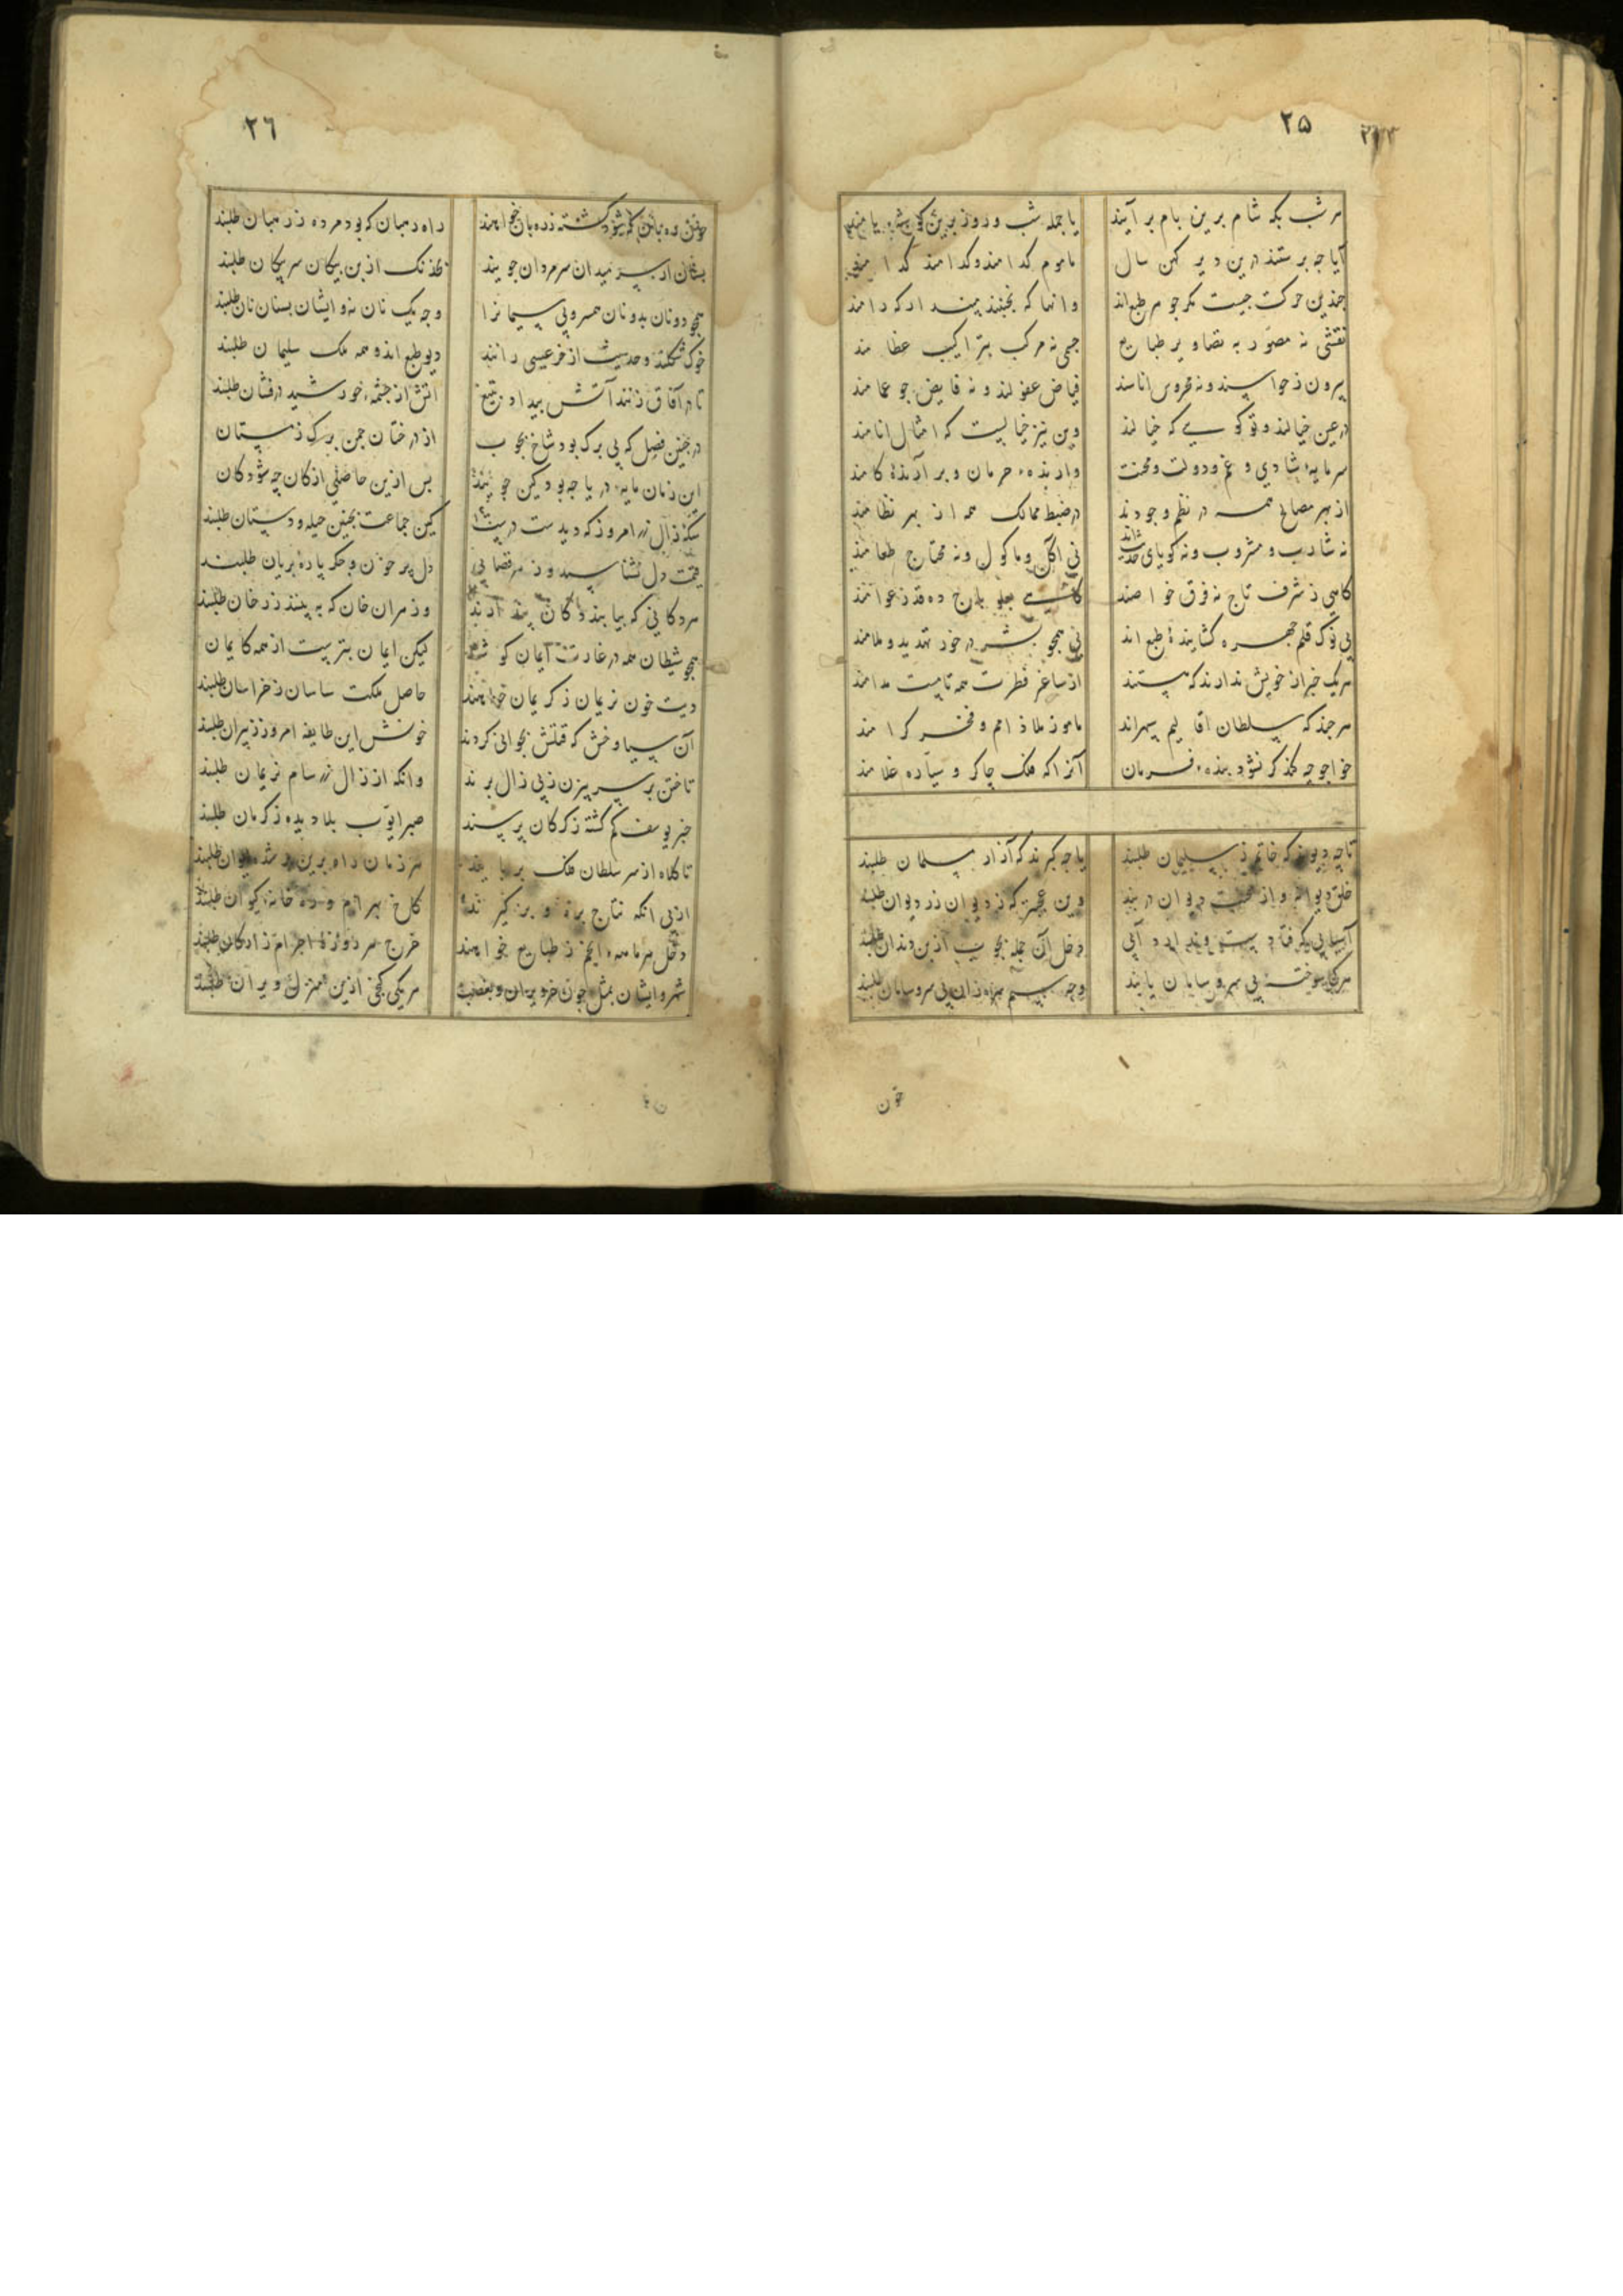 ۲۵
هر شب بکه شام برین بام بر آیند یا جمله شب و روز برین
آیا چه پرستند درین دیر کهن سال مأموم کدامند و کدامند
چندین حرکت چیست مکر جوهر طبع‌اند وانها که نجنبند
نقشی نه مصور به تصاویر طبایع جمعی نه مرکب بتراکیب عظامند
بیرون ز حواسند و نه محروس اناسند فیاض عقولند و نه قایض چو غمامند
در عین خیالند و تو کویی که خیالند وین نیز خیالیست که امثال انامند
سرمایهٔ شادی و غم و دولت و محنت وارندهٔ حرمان و برآرندهٔ کامند
از بهر مصالح همه در نظم وجودند در ضبط ممالک همه از بهر نظامند
نه شارب و مشروب و نه کویای نی آکل و ماکول و نه محتاج طعامند
کاهی ز شرف تاج نه فرق خواصند
بی نوک قلم چهره کشایندهٔ طبع‌اند نی همچو بشر در خور تهدید و ملامند
هر یک خبر از خویش ندارند که مستند از ساغر فطرت همه تا مست مدامند
هر چند که سلطان اقالیم سپهراند مأمور ملاذ امم و فخر کرامند
خواجو چه کند کر نشود بندهٔ فرمان آنرا که فلک چاکر و سیاره غلامند
تا چه دیوند که خاتم ز سلیمان طلبند یا چه کبرند که آزار مسلمان طلبند
خلق دیوانه و از محنت دیوان در بند وین عجبتر که ز دیوان زر دیوان طلبند
هر کجا سوختهٔ بی سر و سامان یابند وجه سیم سره زان بی سر و سامان طلبند
خون
۲۶
راه دهبان که بود مرده ز دهبان طلبند
میدان سر مردان جویند سر پیکان طلبند
همچو دونان بدونان وجه یک نان نه و ایشان بسنان نان طلبند
خوک شکلند و حدیث از خر عیسی رانند دیو طبع‌اند و همه ملک سلیمان طلبند
تا در آفاق زنند آتش بیداد بتیغ آتش از چشمهٔ خورشید درفشان طلبند
در چنین فصل که بی برک بود شاخ بچوب از درختان چمن برک زمستان
این زمان مایهٔ دریا چه بود کین جویند بس ازین حاصلی از کان چه شود کان
سکهٔ زال زر امروز که دیدست درست کین جماعت بچنین حیله و دستان طلبند
قیمت دل نشناسند و ز هر قصابی دل پر خون و جکر پارهٔ بریان طلبند
هر دکانی که بیابند دکان پندارند وز هر ان خان که به بینند زر خان طلبند
همچو شیطان همه در غارت ایمان لیکن ایمان بتر بیست از همه کایمان
دیت خون نریمان ز کریمان خواهند حاصل ملکت ساسان ز خراسان طلبند
آن سیاوخش که قتلش بجوانی کردند خونش این طایفه امروز ز پیران طلبند
تاختن بر سر بیزن ز پی زال برند وانکه از زال زر سام نریمان طلبند
خبر یوسف کم کشته ز کرکان پرسند صبر ایوب بلا دیده ز کرمان طلبند
تا کلاه از سر سلطان فلک بربایند هر زمان راه برین
از پی انکه نتاج بره و بز کیرند کاخ بهرام و در خانهٔ کیوان طلبند
دخل هر ماهه انجم ز طبایع خواهند خرج هر روزهٔ اجرام ز ارکان طلبند
شهر و ایشان بمثل چون خر ویران هر یکی کنجی ازین منزل ویران طلبند